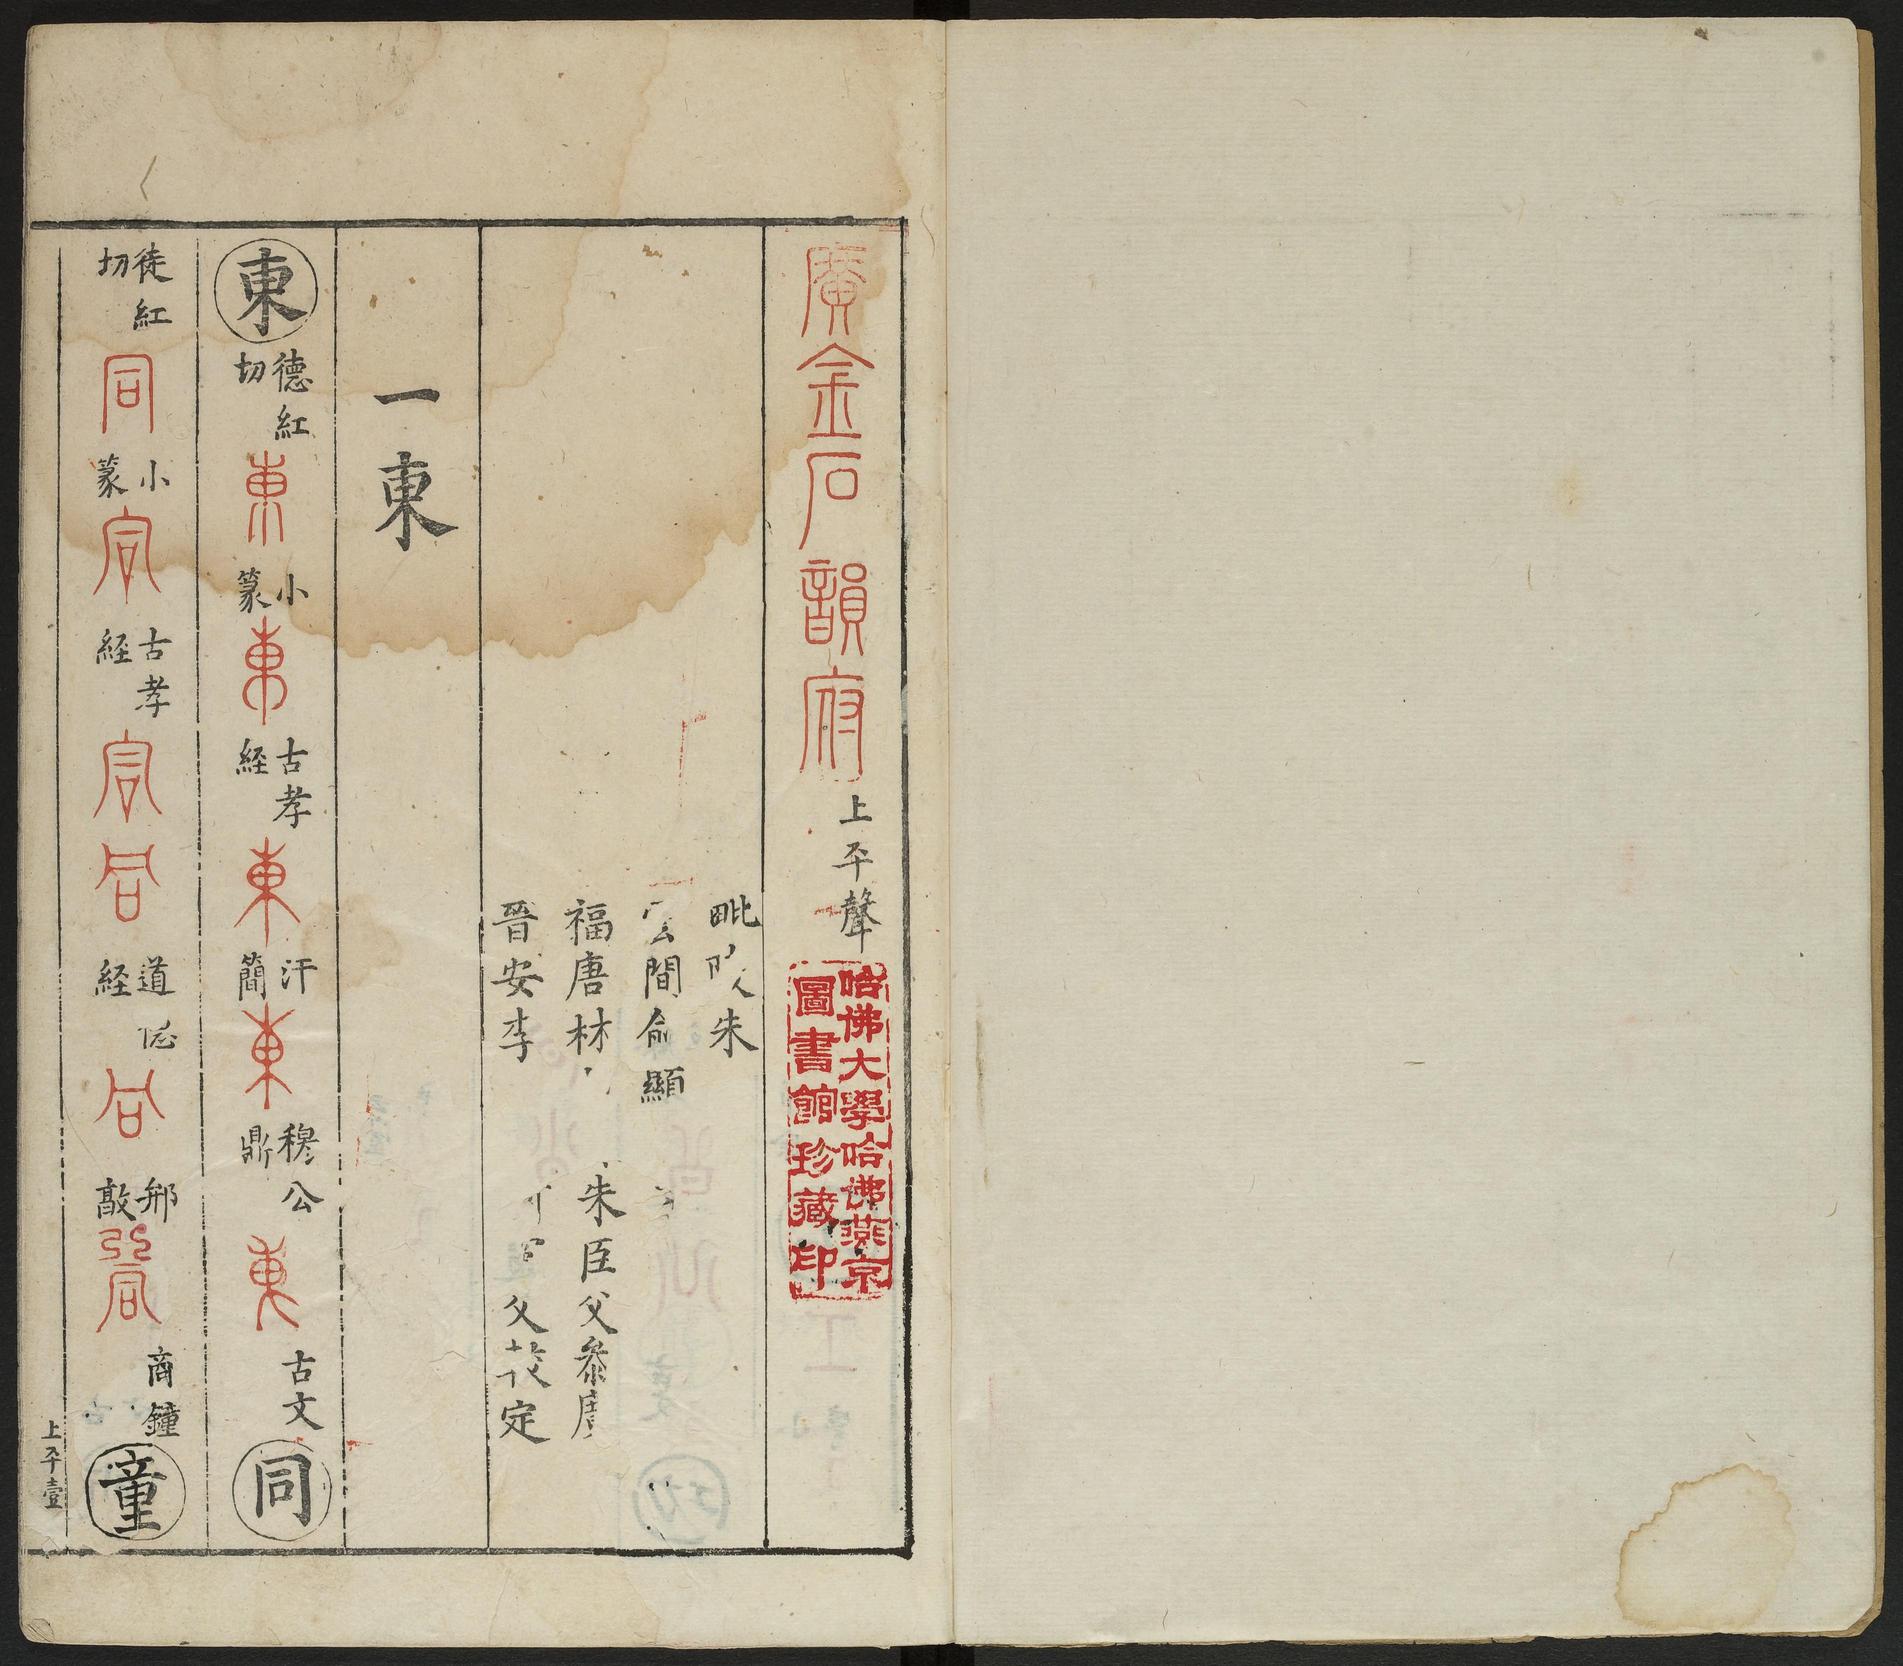 廣金石韻府上平聲
哈佛大學哈佛燕京
圖書館珍藏印
毗 朱
間俞顯
福唐林 朱臣父參
晉安李 父 定
一東
東德紅切東小篆東古孝経東汗簡東穆公鼎東古文同
徒紅切同小篆同古孝経同同道德経同邢敦同商鐘童
上平壹